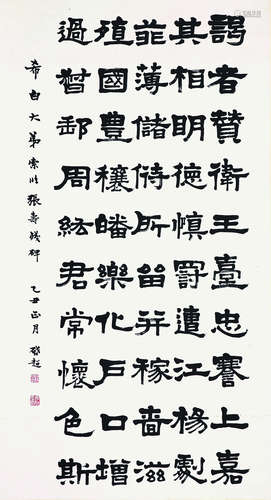 謁者贊衛王臺忠謇上嘉
其相明德慎罰遭江楊劇
菲薄儲偫所畄并稼嗇滋
殖國豊穰皤樂化戶口增
過督郵周紘君常懷色斯
希白大弟索臨張壽殘碑
乙丑正月啟超